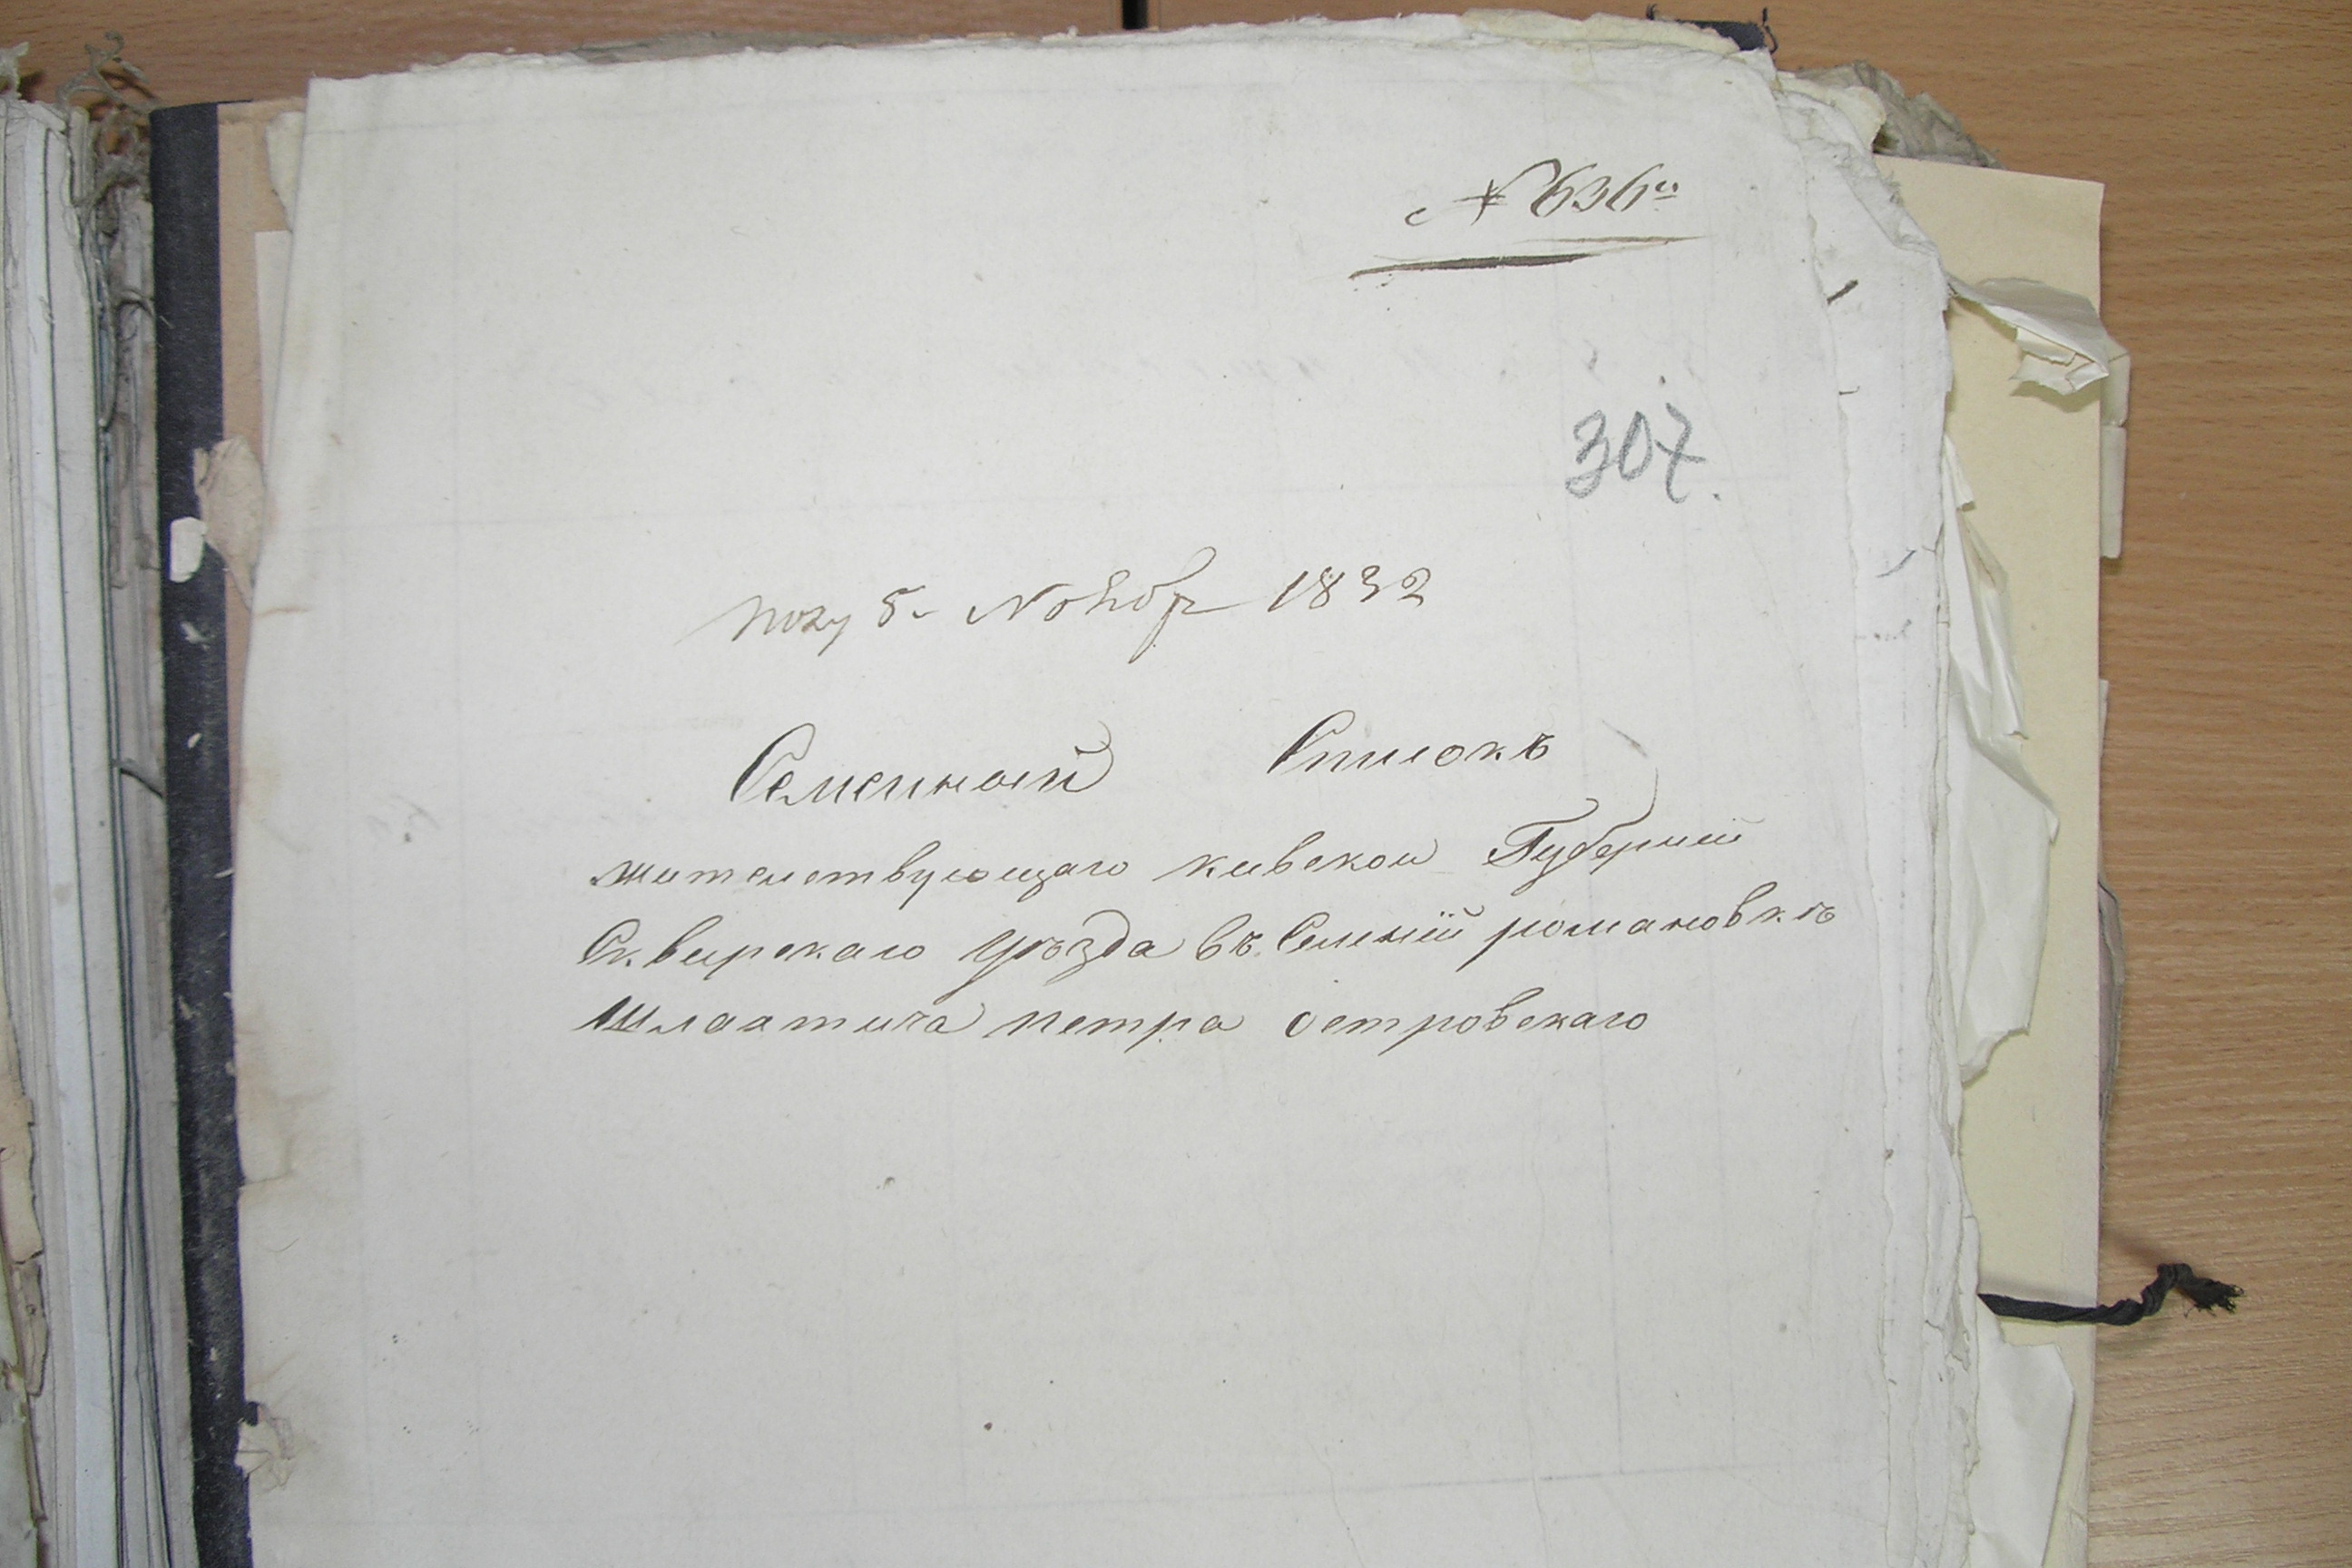 № 636й
307.
полу 5. Ноября 1832
Семейной Списокъ
жительствующаго киевской Губерний
Сквирскаго Уѣзда въ Селений романовкѣ
Шляхтича петра островскаго